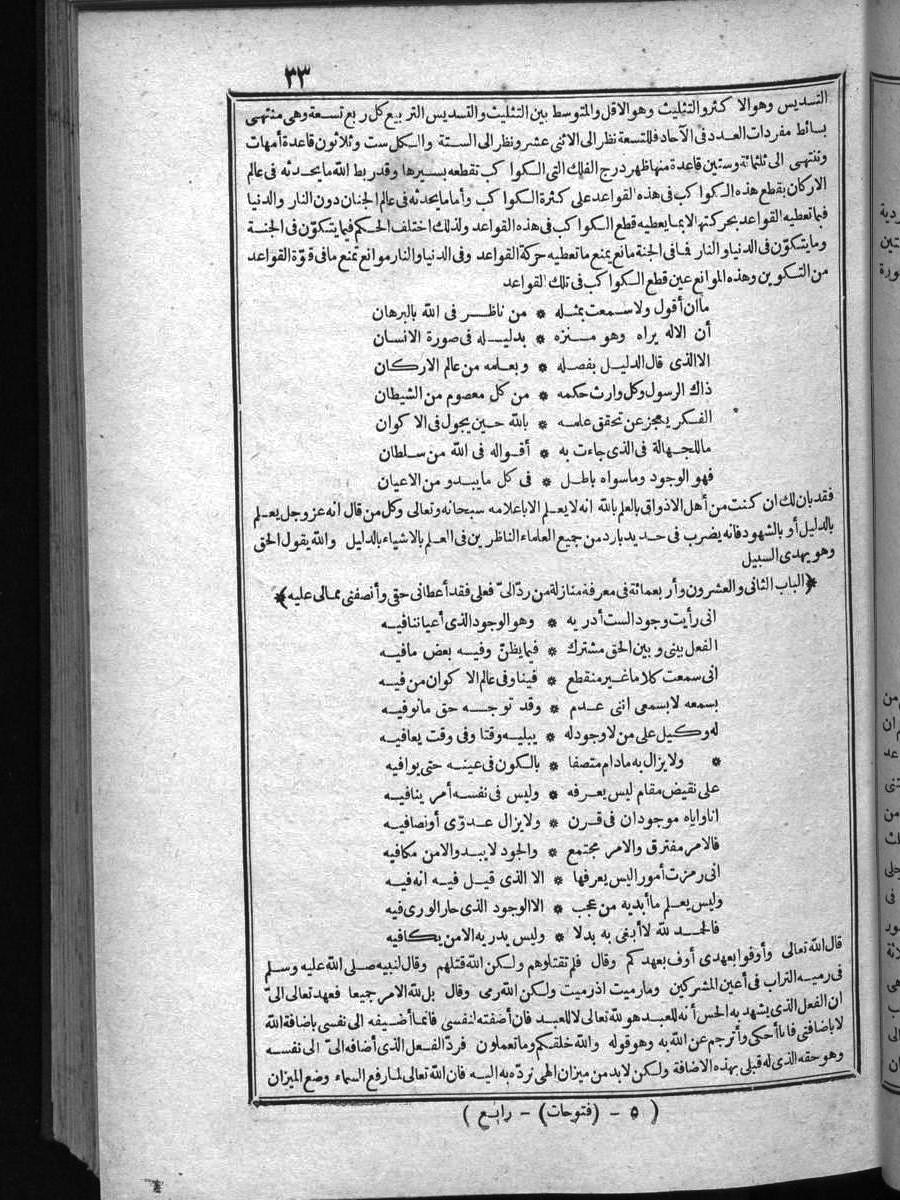 ٣٣
التسديس وهو الا كثر والتثليث وهو الاقل والمتوسط بين التثليث والتسديس التربيع كل ربع تسعة وهى منتهى
بسائط مفردات العدد فى الآحاد فللتسعة نظر الى الاثنى عشر ونظر الى الستة والكل ست وثلاثون قاعدة أمهات
وتنتهى الى ثلثمائة وستين قاعدة منها ظهر درج الفلك التى الكوا كب تقطعه بسيرها وقد ربط الله ما يحدثه فى عالم
الاركان بقطع هذه الكوا كب فى هذه القواعد على كثرة الكوا كب وأما ما يحدثه فى عالم الجنان دون النار والدنيا
فبما تعطيه القواعد بحركتها الا بما يعطيه قطع الكوا كب فى هذه القواعد ولذلك اختلف الحكم فيما يتكوّن فى الجنة
وما يتكوّن فى الدنيا والنار فما فى الجنة مانع يمنع ما تعطيه حركة القواعد وفى الدنيا والنار موانع تمنع ما فى قوّة القواعد
من التكوين وهذه الموانع عين قطع الكوا كب فى تلك القواعد
ما ان أقول ولا سمعت بمثله * من ناظر فى الله بالبرهان
أن الاله يراه وهو منزه * بدليله فى صورة الانسان
الا الذى قال الدليل بفصله * وبعلمه من عالم الاركان
ذاك الرسول وكل وارث حكمه * من كل معصوم من الشيطان
الفكر يعجز عن تحقق علمه * بالله حين يجول فى الا كوان
ما للجهالة فى الذى جاءت به * أقواله فى الله من سلطان
فهو الوجود وما سواه باطل * فى كل ما يبدو من الاعيان
فقد بان لك ان كنت من أهل الاذواق بالعلم بالله انه لا يعلم الا باعلامه سبحانه وتعالى وكل من قال انه عز وجل يعلم
بالدليل أو بالشهود فانه يضرب فى حديد بارد من جميع العلماء الناظرين فى العلم بالاشياء بالدليل والله يقول الحق
وهو يهدى السبيل
﴿الباب الثانى والعشرون وأربعمائة فى معرفة منازلة من ردّ الىّ فعلى فقد أعطانى حقى وأنصفنى مما لى عليه﴾
انى رأيت وجودا لست أدريه * وهو الوجود الذى أعياننا فيه
الفعل بينى وبين الحق مشترك * فيما يظنّ وفيه بعض ما فيه
انى سمعت كلاما غير منقطع * فينا وفى عالم الا كوان من فيه
بسمعه لا بسمعى اننى عدم * وقد توجه حق ما نوفيه
له وكيل على من لا وجود له * يبليه وقتا وفى وقت يعافيه
* ولا يزال به ما دام متصفا * بالكون فى عينه حتى يوافيه
على نقيض مقام ليس يعرفه * وليس فى نفسه أمر ينافيه
انا واياه موجودان فى قرن * ولا يزال عدوّى أو نصافيه
فالامر مفترق والامر مجتمع * والجود لا يبدو الا من مكافيه
انى رمزت أمورا ليس يعرفها * الا الذى قيل فيه انه فيه
وليس يعلم ما أبديه من عجب * الا الوجود الذى حار الورى فيه
فالحمد لله لا أبغى به بدلا * وليس يدريه الا من يكافيه
قال الله تعالى وأوفوا بعهدى أوف بعهدكم وقال فلم تقتلوهم ولكن الله قتلهم وقال لنبيه صلى الله عليه وسلم
فى رميه التراب فى أعين المشركين وما رميت اذ رميت ولكن الله رمى وقال بل لله الامر جميعا فعهد تعالى الىّ
ان الفعل الذى يشهد به الحس أنه للعبد هو لله تعالى لا للعبد فان أضفته لنفسى فانما أضيفه الى نفسى باضافة الله
لا باضافتى فانا أحكى وأترجم عن الله به وهو قوله والله خلقكم وما تعملون فردّ الفعل الذى أضافه الىّ الى نفسه
وهو حقه الذى له قبلى بهذه الاضافة ولكن لا بد من ميزان الهى نردّه به اليه فان الله تعالى لما رفع السماء وضع الميزان
( ٥ - (فتوحات) - رابع )